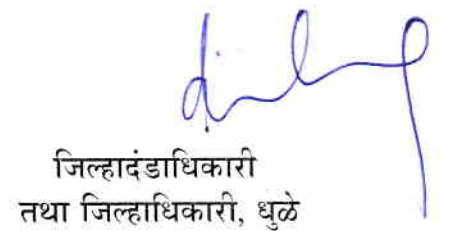 जिल्हादंडाधिकारी
तथा जिल्हाधिकारी, धुळे